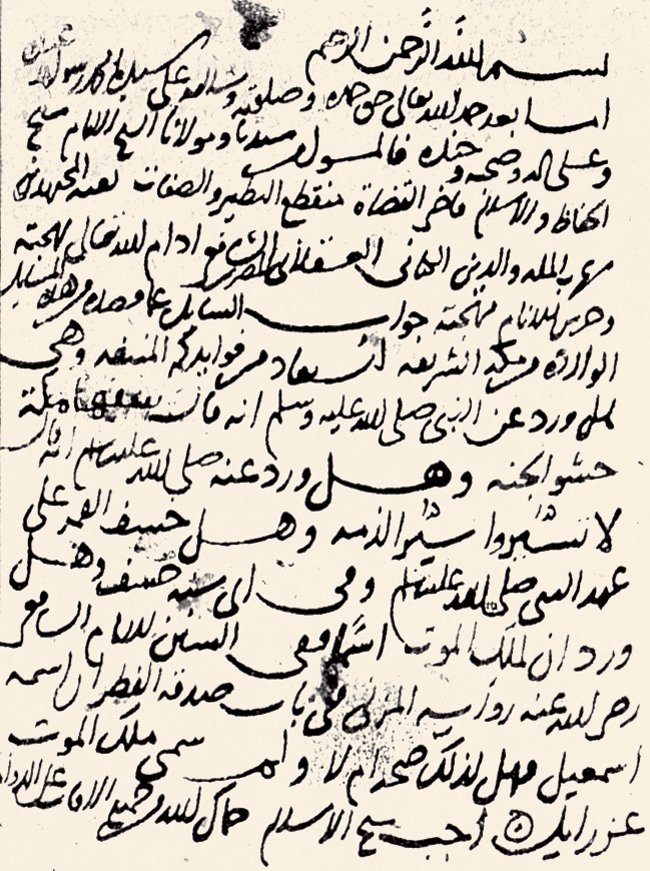 بسم الله الرحمن الرحيم
اما بعد حمد الله تعالى حق حمده وصلوته وسلامه على سيدنا محمد رسوله
وعلى اله وصحبه وجنده فالمسول من سيدنا ومولانا الشيخ الامام شيخ
الحفاظ والاسلام فاخر القضاة منقطع النظير والصفات بقية المجتهدين
شهاب الملة والدين الكناني العسقلاني المصري الشافعي ادام الله تعالى بهجته
وحرس للانام مهجته جواب السايل عما قصده من هذه المسايل
الواردة من مكة الشريفة لتستفاد من فوايدكم المنيفة وهي
هل ورد عن النبي صلى الله عليه وسلم انه قال سفهاء مكة
حشو الجنة وهل ورد عنه صلى الله عليه وسلم انه قال
لا تشتروا شير الذمة وهل خسف القمر على
عهد النبي صلى الله عليه وسلم وفي اي سنة خسف وهل
ورد ان لملك الموت اسما ففي السنن للامام الشافعي
رضي الله عنه رواية المزني في باب صدقة الفطر ان اسمه
اسمعيل فهل لذلك صحة ام لا ولم سمي ملك الموت
عزرايل اجب شيخ الاسلام حماك الله من جميع الافات على الدوام